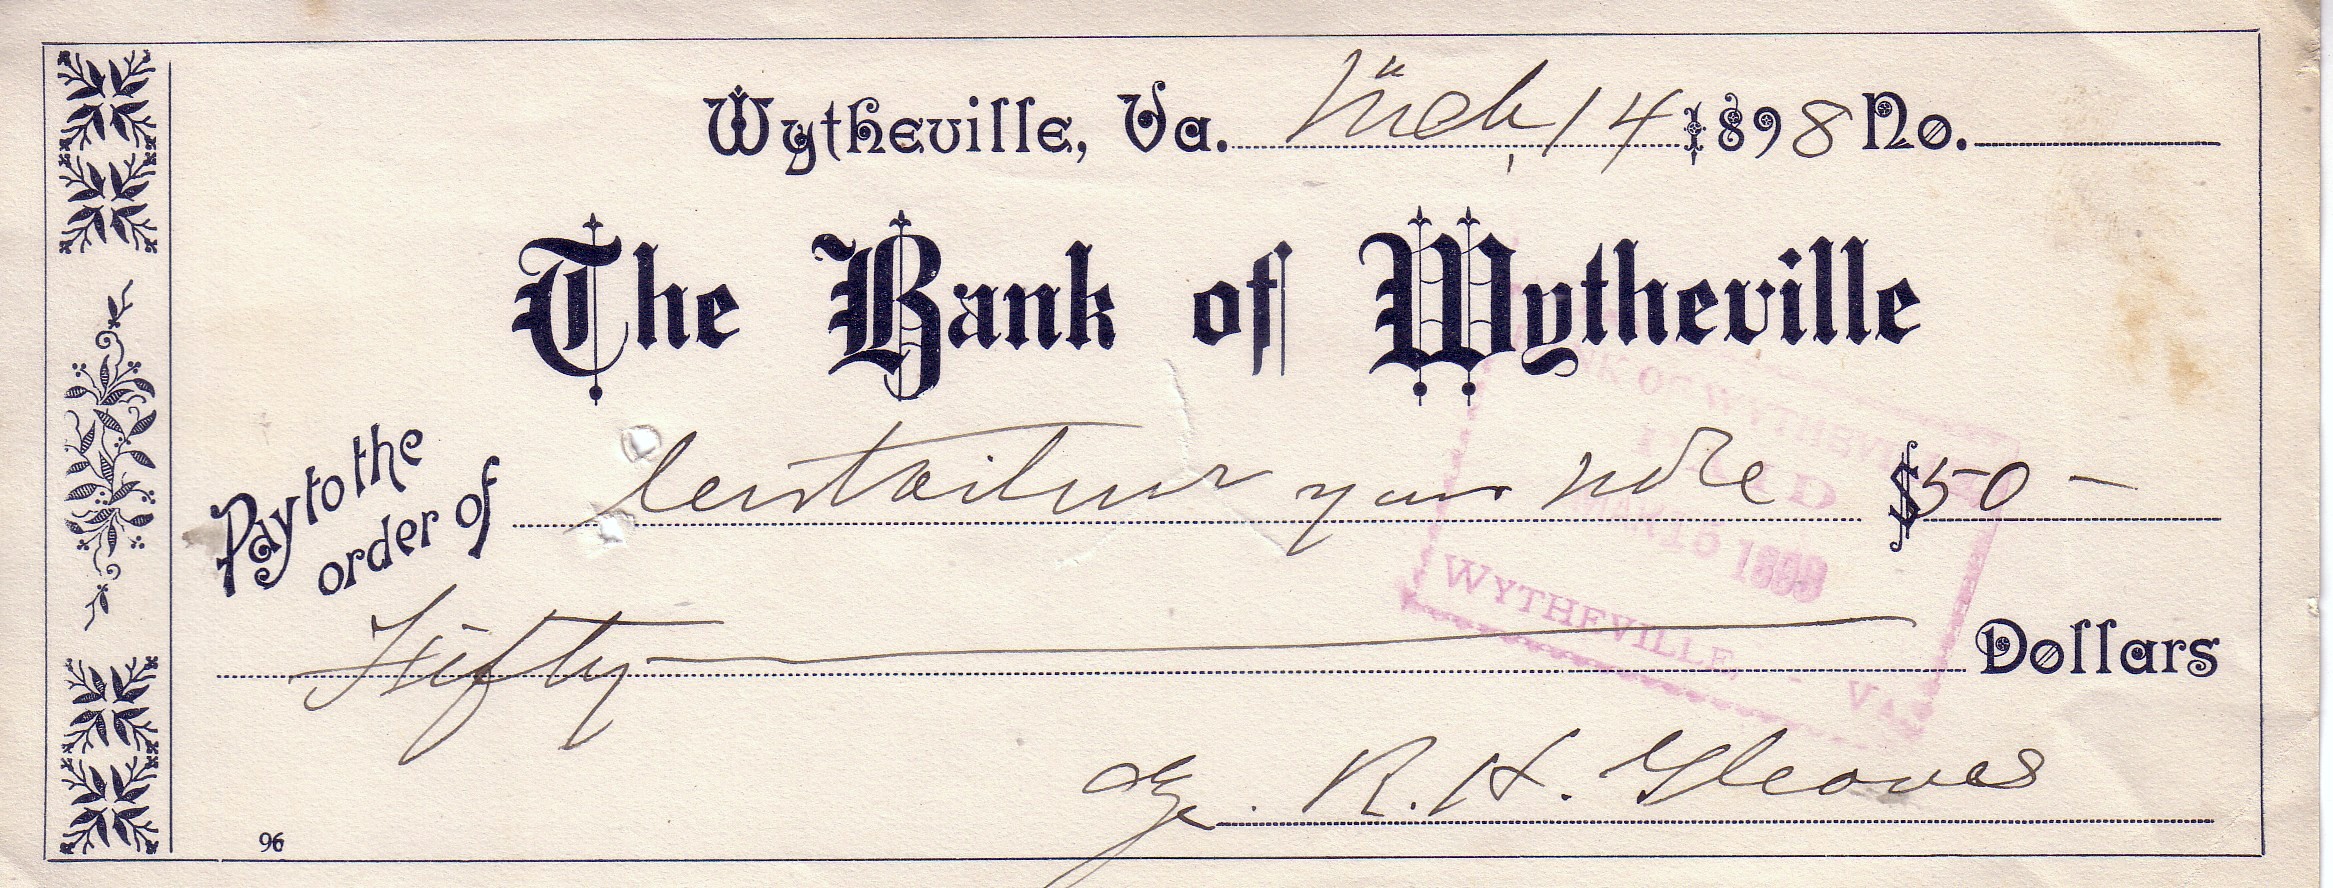 Wytheville, Va. Mch 14 1898 No.
The Bank of Wytheville
Pay to the
order of your note $50 –
Fifty Dollars
BANK OF WYTHEVILLE
PAID
MAR 15 1898
WYTHEVILLE - VA.
R. H. Gleaves
96